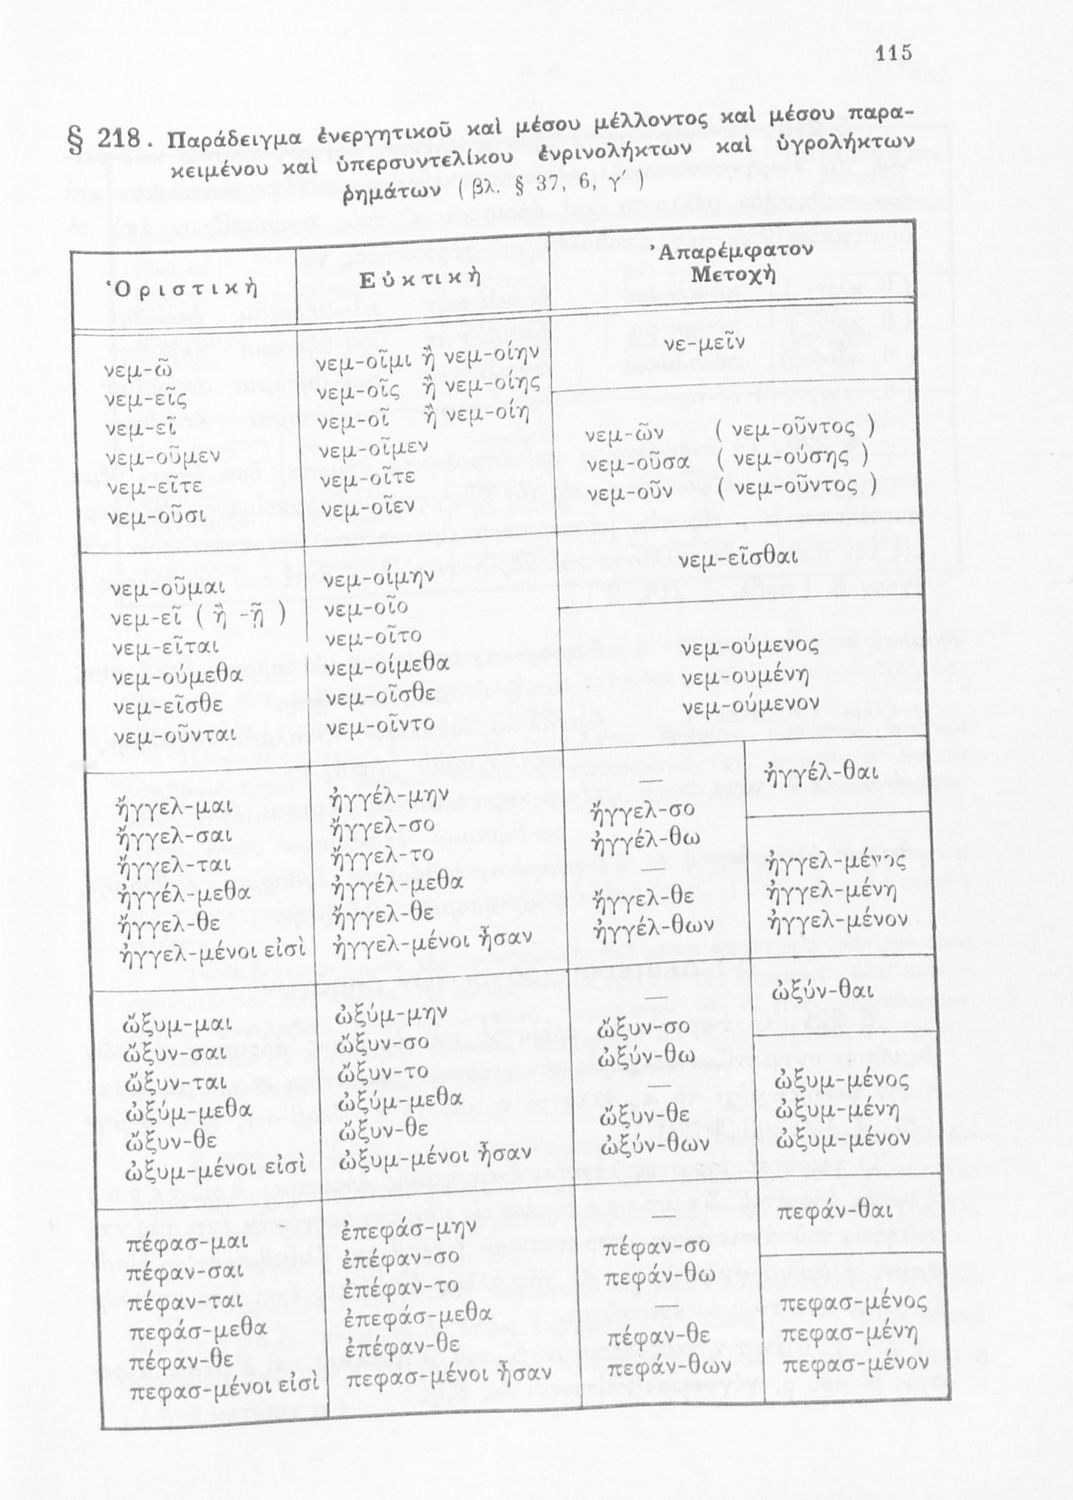 115
§ 218. Παράδειγμα ἐνεργητικοῦ καὶ μέσου μέλλοντος καὶ μέσου παρα-
κειμένου καὶ ὑπερσυντελίκου ἐνρινολήκτων καὶ ὑγρολήκτων
ῥημάτων ( βλ. § 37, 6, γ′ )
Ὁριστικὴ
Εὐκτικὴ
Ἀπαρέμφατον
Μετοχὴ
νεμ-ῶ
νεμ-εῖς
νεμ-εῖ
νεμ-οῦμεν
νεμ-εῖτε
νεμ-οῦσι
νεμ-οῖμι ἢ νεμ-οίην
νεμ-οῖς ἢ νεμ-οίης
νεμ-οῖ ἢ νεμ-οίη
νεμ-οῖμεν
νεμ-οῖτε
νεμ-οῖεν
νε-μεῖν
νεμ-ῶν ( νεμ-οῦντος )
νεμ-οῦσα ( νεμ-ούσης )
νεμ-οῦν ( νεμ-οῦντος )
νεμ-οῦμαι
νεμ-εῖ ( ἢ -ῇ )
νεμ-εῖται
νεμ-ούμεθα
νεμ-εῖσθε
νεμ-οῦνται
νεμ-οίμην
νεμ-οῖο
νεμ-οῖτο
νεμ-οίμεθα
νεμ-οῖσθε
νεμ-οῖντο
νεμ-εῖσθαι
νεμ-ούμενος
νεμ-ουμένη
νεμ-ούμενον
ἤγγελ-μαι
ἤγγελ-σαι
ἤγγελ-ται
ἠγγέλ-μεθα
ἤγγελ-θε
ἠγγελ-μένοι εἰσὶ
ἠγγέλ-μην
ἤγγελ-σο
ἤγγελ-το
ἠγγέλ-μεθα
ἤγγελ-θε
ἠγγελ-μένοι ἦσαν
—
ἤγγελ-σο
ἠγγέλ-θω
—
ἤγγελ-θε
ἠγγέλ-θων
ἠγγέλ-θαι
ἠγγελ-μένος
ἠγγελ-μένη
ἠγγελ-μένον
ὤξυμ-μαι
ὤξυν-σαι
ὤξυν-ται
ὠξύμ-μεθα
ὤξυν-θε
ὠξυμ-μένοι εἰσὶ
ὠξύμ-μην
ὤξυν-σο
ὤξυν-το
ὠξύμ-μεθα
ὤξυν-θε
ὠξυμ-μένοι ἦσαν
—
ὤξυν-σο
ὠξύν-θω
—
ὤξυν-θε
ὠξύν-θων
ὠξύν-θαι
ὠξυμ-μένος
ὠξυμ-μένη
ὠξυμ-μένον
πέφασ-μαι
πέφαν-σαι
πέφαν-ται
πεφάσ-μεθα
πέφαν-θε
πεφασ-μένοι εἰσὶ
ἐπεφάσ-μην
ἐπέφαν-σο
ἐπέφαν-το
ἐπεφάσ-μεθα
ἐπέφαν-θε
πεφασ-μένοι ἦσαν
—
πέφαν-σο
πεφάν-θω
πέφαν-θε
πεφάν-θων
πεφάν-θαι
πεφασ-μένος
πεφασ-μένη
πεφασ-μένον